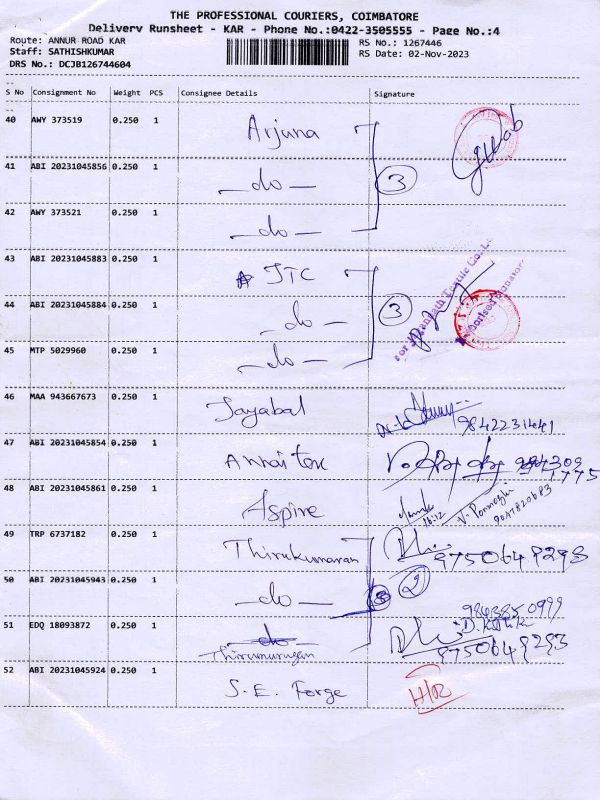 THE PROFESSIONAL COURIERS, COIMBATORE
Delivery Runsheet - KAR - Phone No.:0422-3505555 - Page No.:4
Route: ANNUR ROAD KAR
Staff: SATHISHKUMAR
DRS No.: DCJB126744604
RS No.: 1267446
RS Date: 02-Nov-2023
S No Consignment No Weight PCS Consignee Details Signature
40 AWY 373519 0.250 1 Arjuna
41 ABI 20231045856 0.250 1 —do— 3
42 AWY 373521 0.250 1 —do—
43 ABI 20231045883 0.250 1 JTC
44 ABI 20231045884 0.250 1 —do— 3
45 MTP 5029960 0.250 1 —do—
46 MAA 943667673 0.250 1 Jayabal 9842231441
47 ABI 20231045854 0.250 1 Annai tex
48 ABI 20231045861 0.250 1 Aspire
49 TRP 6737182 0.250 1 Thirukumaran
50 ABI 20231045943 0.250 1 —do— 2
51 EDQ 18093872 0.250 1 Thirumurugan
52 ABI 20231045924 0.250 1 S.E. Forge